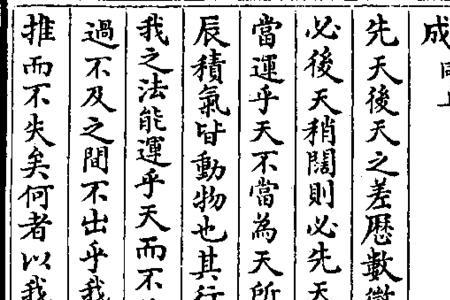 成同上
先天後天之差歷數微
必後天稍闊則必先天
當運乎天不當為天所
辰積氣皆動物也其行
我之法能運乎天而不
過不及之間不出乎我
推而不失矣何者以我